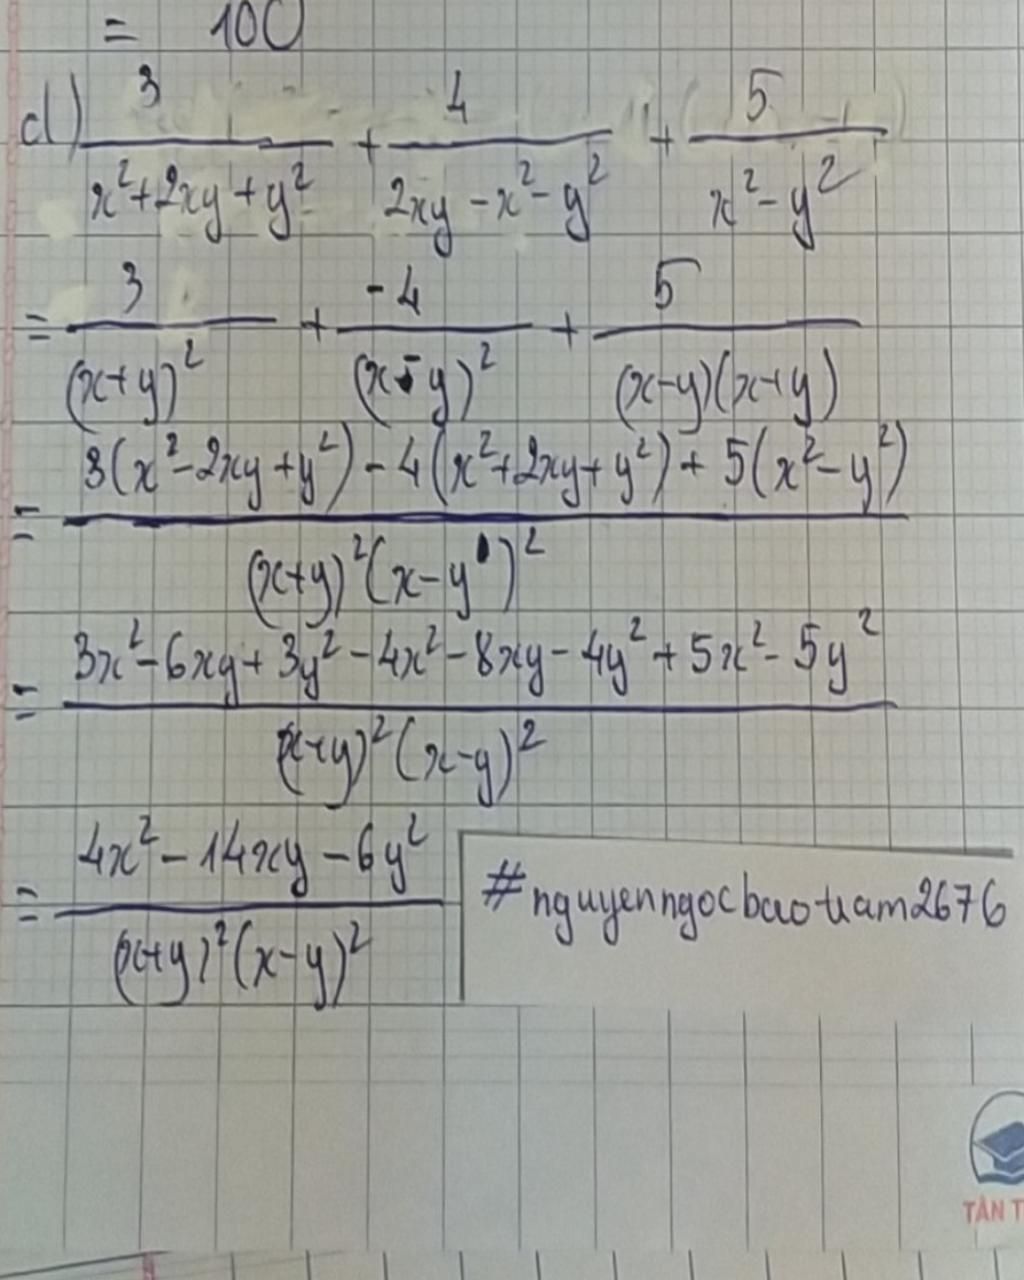 = 100
d) 3/(x²+2xy+y²) + 4/(2xy-x²-y²) + 5/(x²-y²)
= 3/(x+y)² + -4/(x-y)² + 5/((x-y)(x+y))
= (3(x²-2xy+y²) - 4(x²+2xy+y²) + 5(x²-y²))/((x+y)²(x-y)²)
= (3x²-6xy+3y²-4x²-8xy-4y²+5x²-5y²)/((x+y)²(x-y)²)
= (4x²-14xy-6y²)/((x+y)²(x-y)²)
#nguyenngocbaotram2676
TÂN T